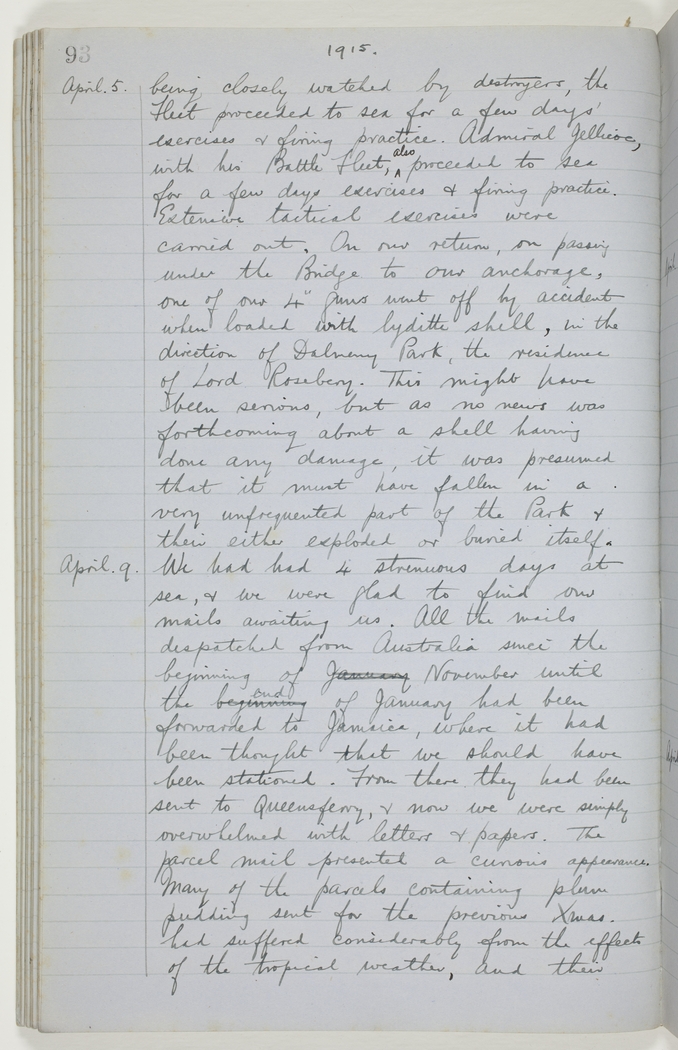 93
1915.
April. 5. being closely watched by destroyers, the
Fleet proceeded to sea for a few days'
exercises & firing practice. Admiral Jellicoe,
with his Battle Fleet, also proceeded to sea
for a few days exercises & firing practice.
Extensive tactical exercises were
carried out. On our return, on passing
under the Bridge to our anchorage,
one of our 4" guns went off by accident
when loaded with lyditte shell, in the
direction of Dalmeny Park, the residence
of Lord Rosebery. This might have
been serious, but as no news was
forthcoming about a shell having
done any damage, it was presumed
that it must have fallen in a
very unfrequented part of the Park &
then either exploded or buried itself.
April. 9. We had had 4 strenuous days at
sea, & we were glad to find our
mails awaiting us. All the mails
despatched from Australia since the
beginning of January November until
the beginning end of January had been
forwarded to Jamaica, where it had
been thought that we should have
been stationed. From there they had been
sent to Queensferry, & now we were simply
overwhelmed with letters & papers. The
parcel mail presented a curious appearance.
Many of the parcels containing plum
pudding sent for the previous Xmas.
had suffered considerably from the effects
of the tropical weather, and their